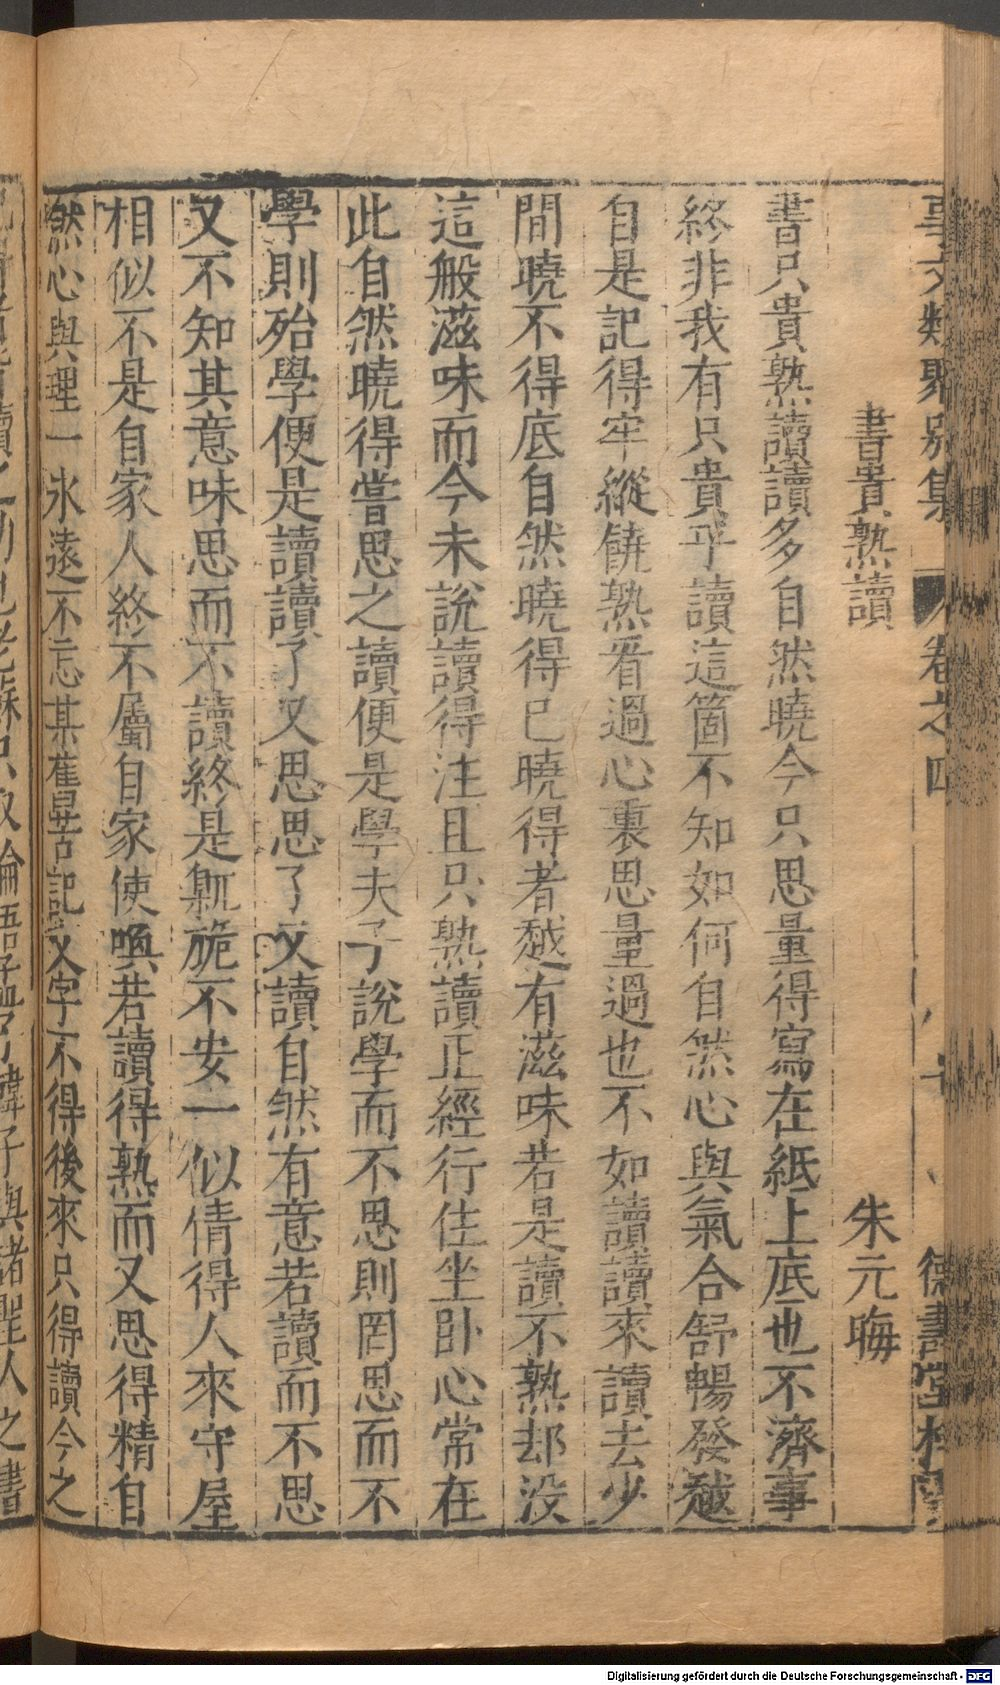 事文類聚別集 卷之四 德壽堂梓
書貴熟讀 朱元晦
書只貴熟讀讀多自然曉今只思量得寫在紙上底也不濟事
終非我有只貴乎讀這箇不知如何自然心與氣合舒暢發越
自是記得牢縱饒熟看過心裏思量過也不如讀讀來讀去少
間曉不得底自然曉得已曉得者越有滋味若是讀不熟却没
這般滋味而今未說讀得注且只熟讀正經行住坐卧心常在
此自然曉得嘗思之讀便是學夫子說學而不思則罔思而不
學則殆學便是讀讀了又思思了又讀自然有意若讀而不思
又不知其意味思而不讀終是臲卼不安一似倩得人來守屋
相似不是自家人終不屬自家使喚若讀得熟而又思得精自
然心與理一永遠不忘某舊苦記文字不得後來只得讀今之
Digitalisierung gefördert durch die Deutsche Forschungsgemeinschaft - DFG